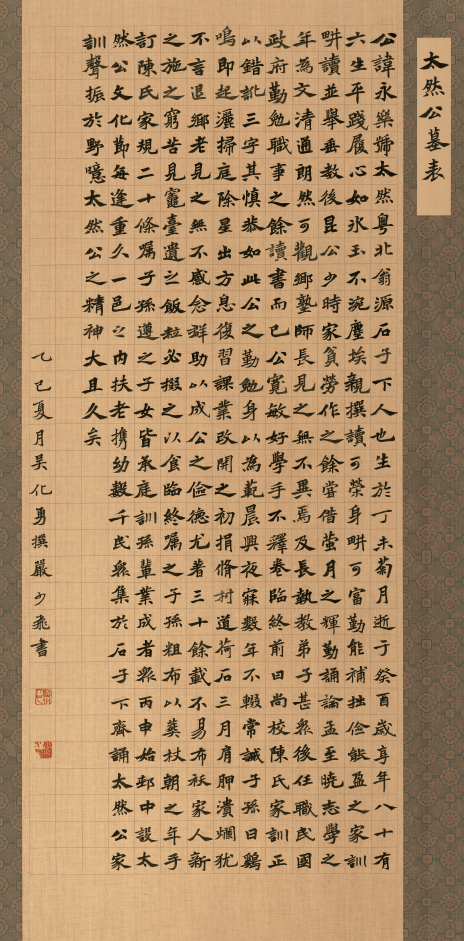 太然公墓表
公諱永樂號太然粵北翁源石子下人也生於丁未菊月逝于癸酉歲享年八十有
六生平踐履心如氷玉不涴塵埃親撰讀可榮身畊可富勤能補拙儉能盈之家訓
畊讀並舉垂教後昆公少時家貧勞作之餘嘗借螢月之輝勤誦論孟至曉志學之
年為文清通朗然可觀鄉塾師長見之無不異焉及長執教弟子甚衆後任職民國
政府勤勉職事之餘讀書而已公寬敏好學手不釋卷臨終前日尚校陳氏家訓正
以錯訛三字其慎恭如此公之勤勉身以為範晨興夜寐數年不輟常誡子孫曰鷄
鳴即起灑掃庭除星出方息復習課業改開之初捐脩村道荷石三月肩胛潰爛犹
不言退鄉老見之無不感念群助以成公之儉德尤著三十餘載不易布袄家人新
之施之窮苦見竈臺遺之飯粒必掇之以食臨終嘱之子孫粗布以葬杖朝之年手
訂陳氏家規二十條嘱子孫遵之子女皆承庭訓孫輩業成者衆丙申始邨中設太
然公文化節每逢重久一邑之内扶老携幼數千民衆集於石子下齊誦太然公家
訓聲振於野噫太然公之精神大且久矣
乙巳夏月吴化勇撰嚴少飛書